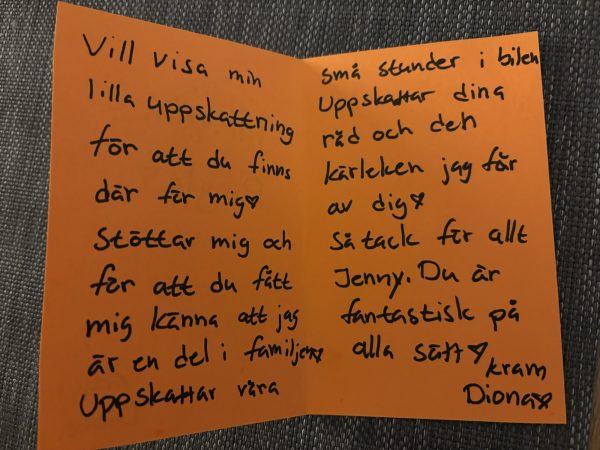 Vill visa min
lilla uppskattning
för att du finns
där för mig♥
Stöttar mig och
för att du fått
mig känna att jag
är en del i familjen♥
Uppskattar våra
små stunder i bilen
Uppskattar dina
råd och den
kärleken jag får
av dig♥
Så tack för allt
Jenny. Du är
fantastisk på
alla sätt♥
kram
Diona♥